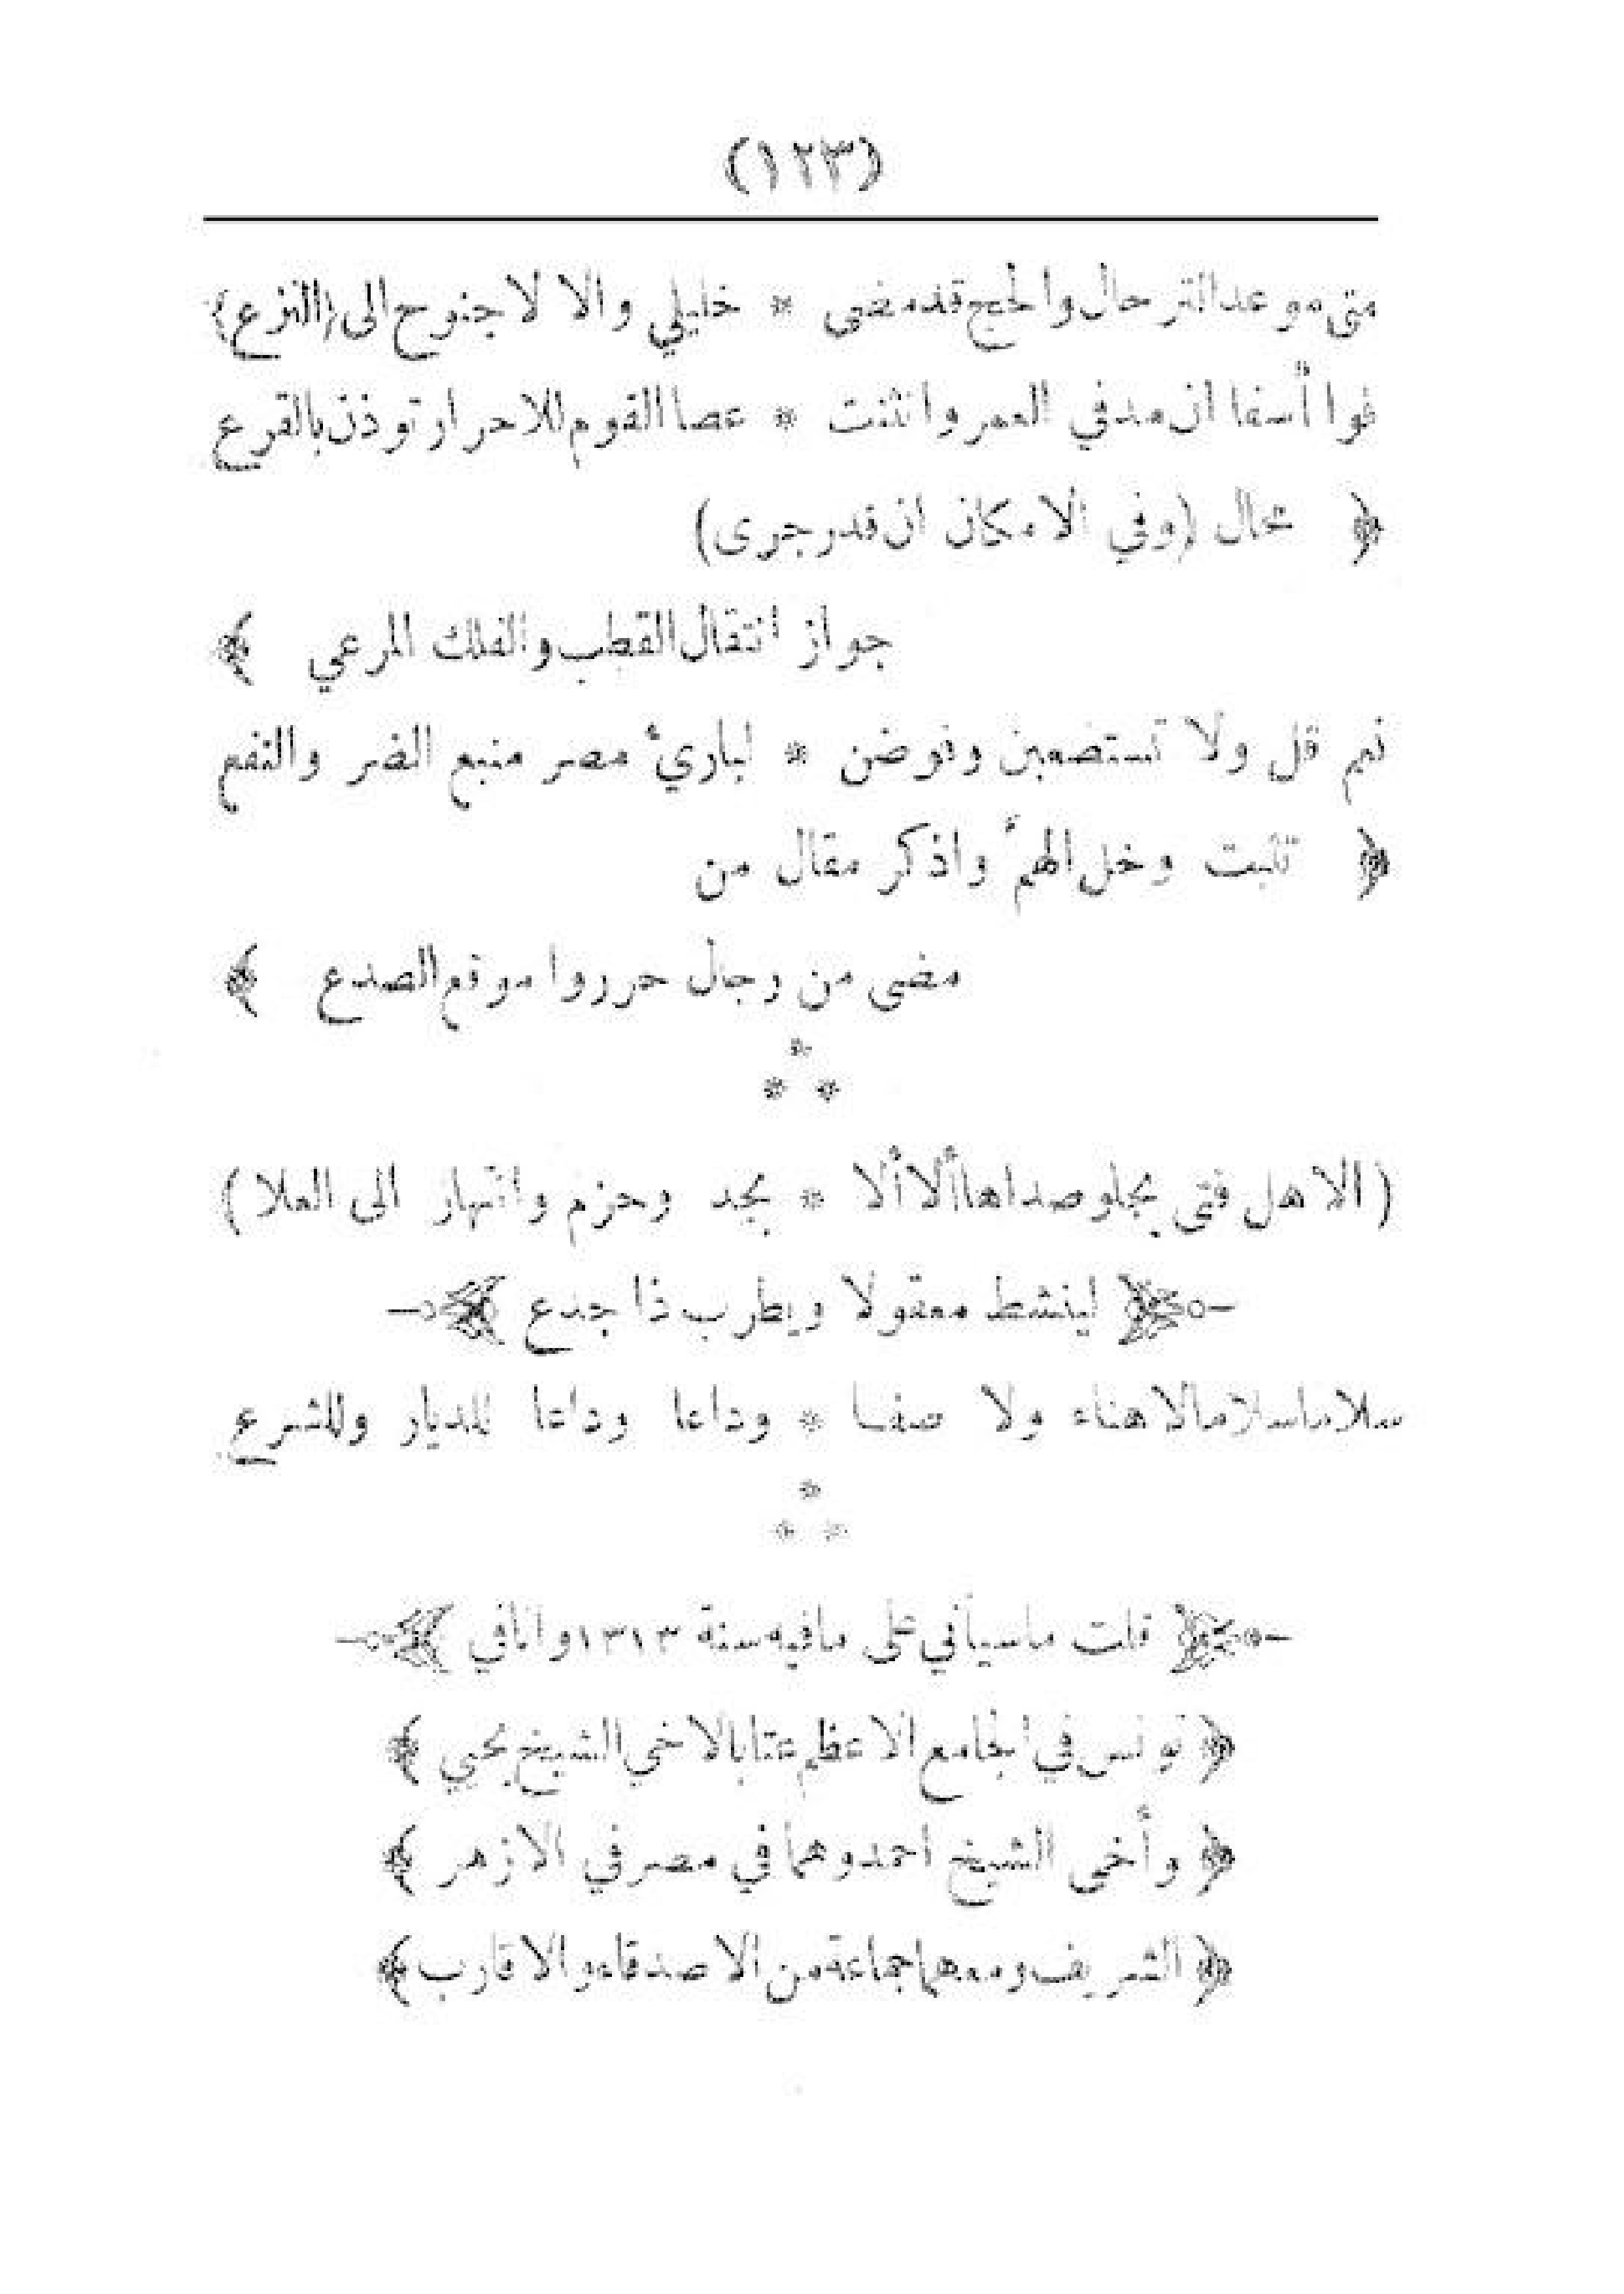 (١٢٣)
متى موعد الترحال والحجج قد مضى * خليلي والا لا جنوح الى (النزع)
فوا أسفا ان مد في العمر وانثنت * عصا القوم للاحرار توذن بالقرع
﴿ محال (وفي الامكان ان قدر جرى)
جواز انتقال القطب والفلك المرعي ﴾
نم قل ولا تستضعفن وفوضن * لبارئ مصر منبع الضر والنفع
﴿ تثبت وخل الهمّ واذكر مقال من
مضى من رجال حرروا موقع الصدع ﴾
*
* *
(الا هل فتى يجلو صداها ألا ألا * بجد وحزم وانتهاز الى العلا)
﴿ لينشط معقولا ويطرب ذا جدع ﴾
سلاما سلاما لا هناء ولا صفا * وداعا وداعا للديار وللشرع
*
* *
﴿ قلت ما سيأتي على ما فيه سنة ١٣١٣ وانا في ﴾
﴿ تونس في الجامع الاعظم عتابا لاخي الشيخ يحيى ﴾
﴿ وأخي الشيخ احمد وهما في مصر في الازهر ﴾
﴿ الشريف ومعهما جماعة من الاصدقاء والاقارب ﴾